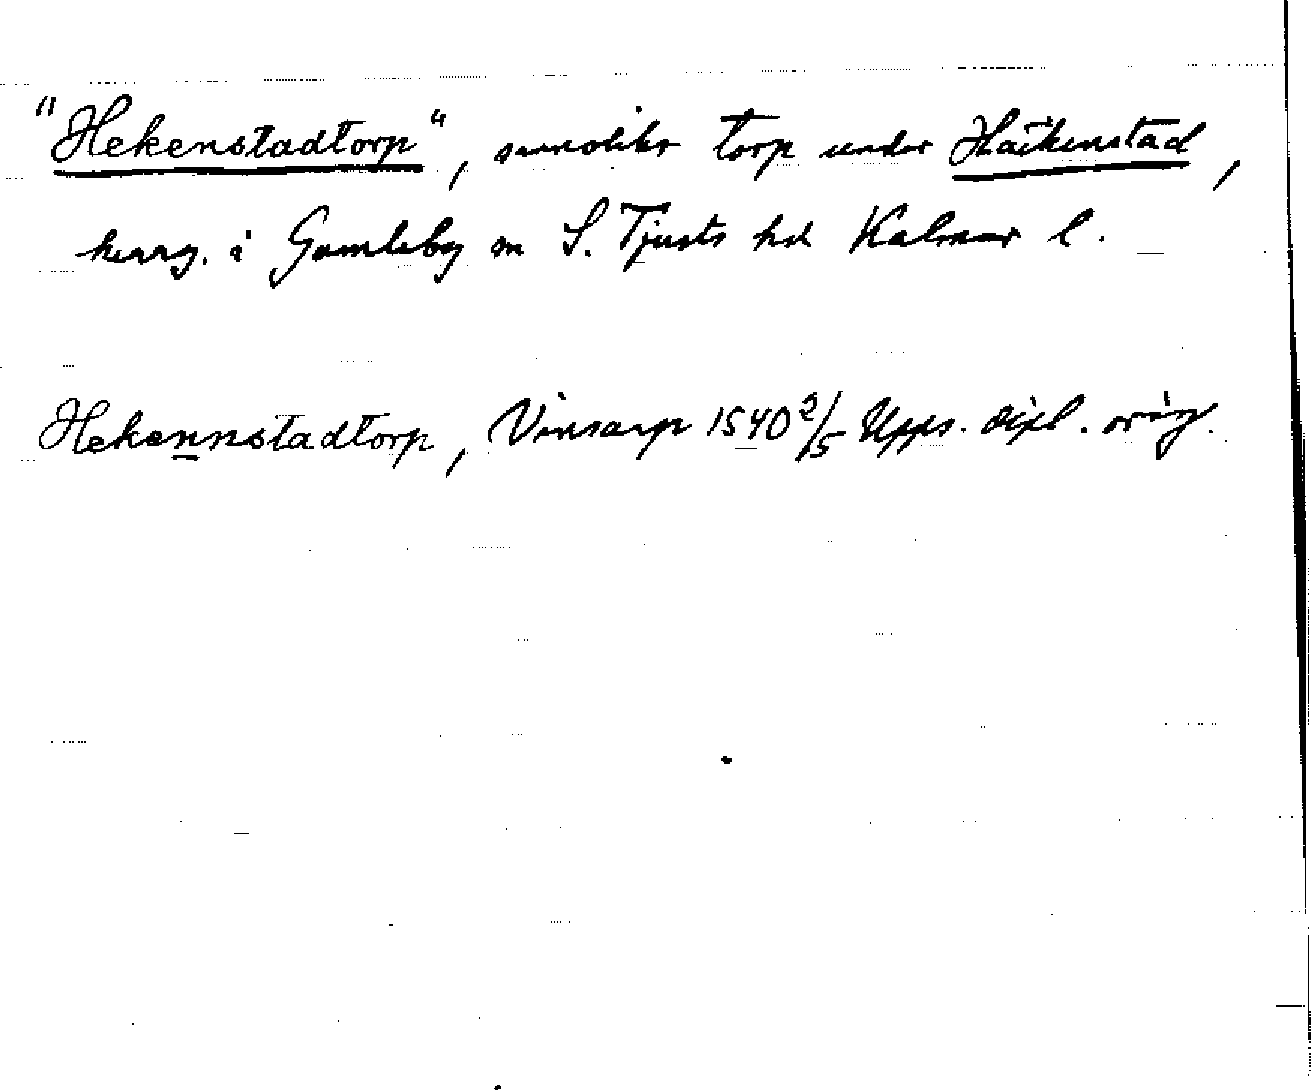 "Hekenstadtorp", sannolikt torp under Häckenstad,
herrg. i Gamleby sn S. Tjusts hd Kalmar l.
Hekennstadtorp, Vinsarp 1540 2/5 Upps. dipl. orig.